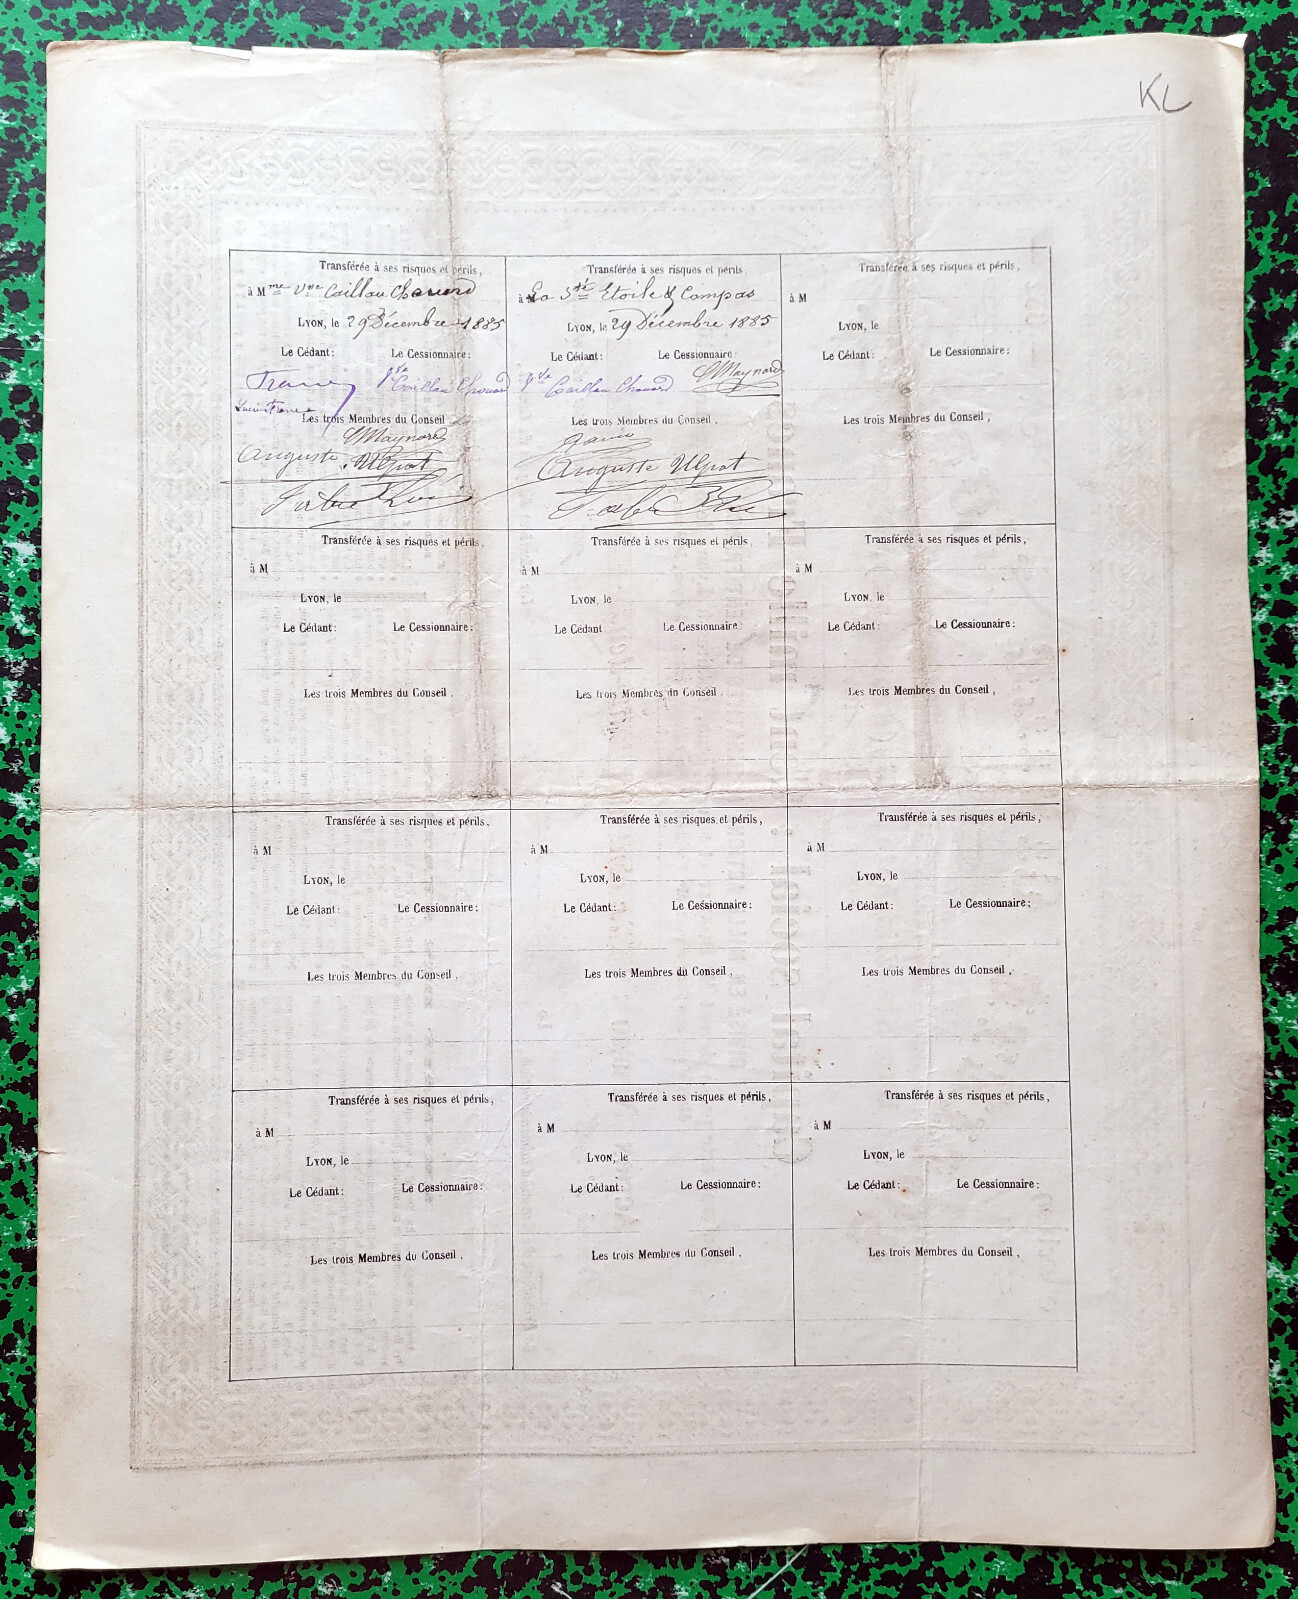 KL
Transférée à ses risques et périls,
à Mme Vve Caillau Chouard
Lyon, le 29 Décembre 1885
Le Cédant: Le Cessionnaire:
Vve Caillau Chouard
Les trois Membres du Conseil
Maynard
Auguste
Transférée à ses risques et périls
à La Sté Etoile & Compas
Lyon, le 29 Décembre 1885
Le Cédant: Le Cessionnaire:
Vve Caillau Chouard Maynard
Les trois Membres du Conseil.
Auguste
Transférée à ses risques et périls,
à M
Lyon, le
Le Cédant: Le Cessionnaire:
Les trois Membres du Conseil,
Transférée à ses risques et périls.
à M
Lyon, le
Le Cédant: Le Cessionnaire:
Les trois Membres du Conseil.
Transférée à ses risques et périls,
à M
Lyon, le
Le Cédant Le Cessionnaire:
Les trois Membres du Conseil.
Transférée à ses risques et périls,
à M
Lyon, le
Le Cédant: Le Cessionnaire:
Les trois Membres du Conseil,
Transférée à ses risques et périls,
à M
Lyon, le
Le Cédant: Le Cessionnaire:
Les trois Membres du Conseil.
Transférée à ses risques et périls,
à M
Lyon, le
Le Cédant: Le Cessionnaire:
Les trois Membres du Conseil.
Transférée à ses risques et périls,
à M
Lyon, le
Le Cédant: Le Cessionnaire;
Les trois Membres du Conseil,
Transférée à ses risques et périls,
à M
Lyon, le
Le Cédant: Le Cessionnaire:
Les trois Membres du Conseil.
Transférée à ses risques et périls,
à M
Lyon, le
Le Cédant: Le Cessionnaire:
Les trois Membres du Conseil,
Transférée à ses risques et périls,
à M
Lyon, le
Le Cédant: Le Cessionnaire:
Les trois Membres du Conseil,